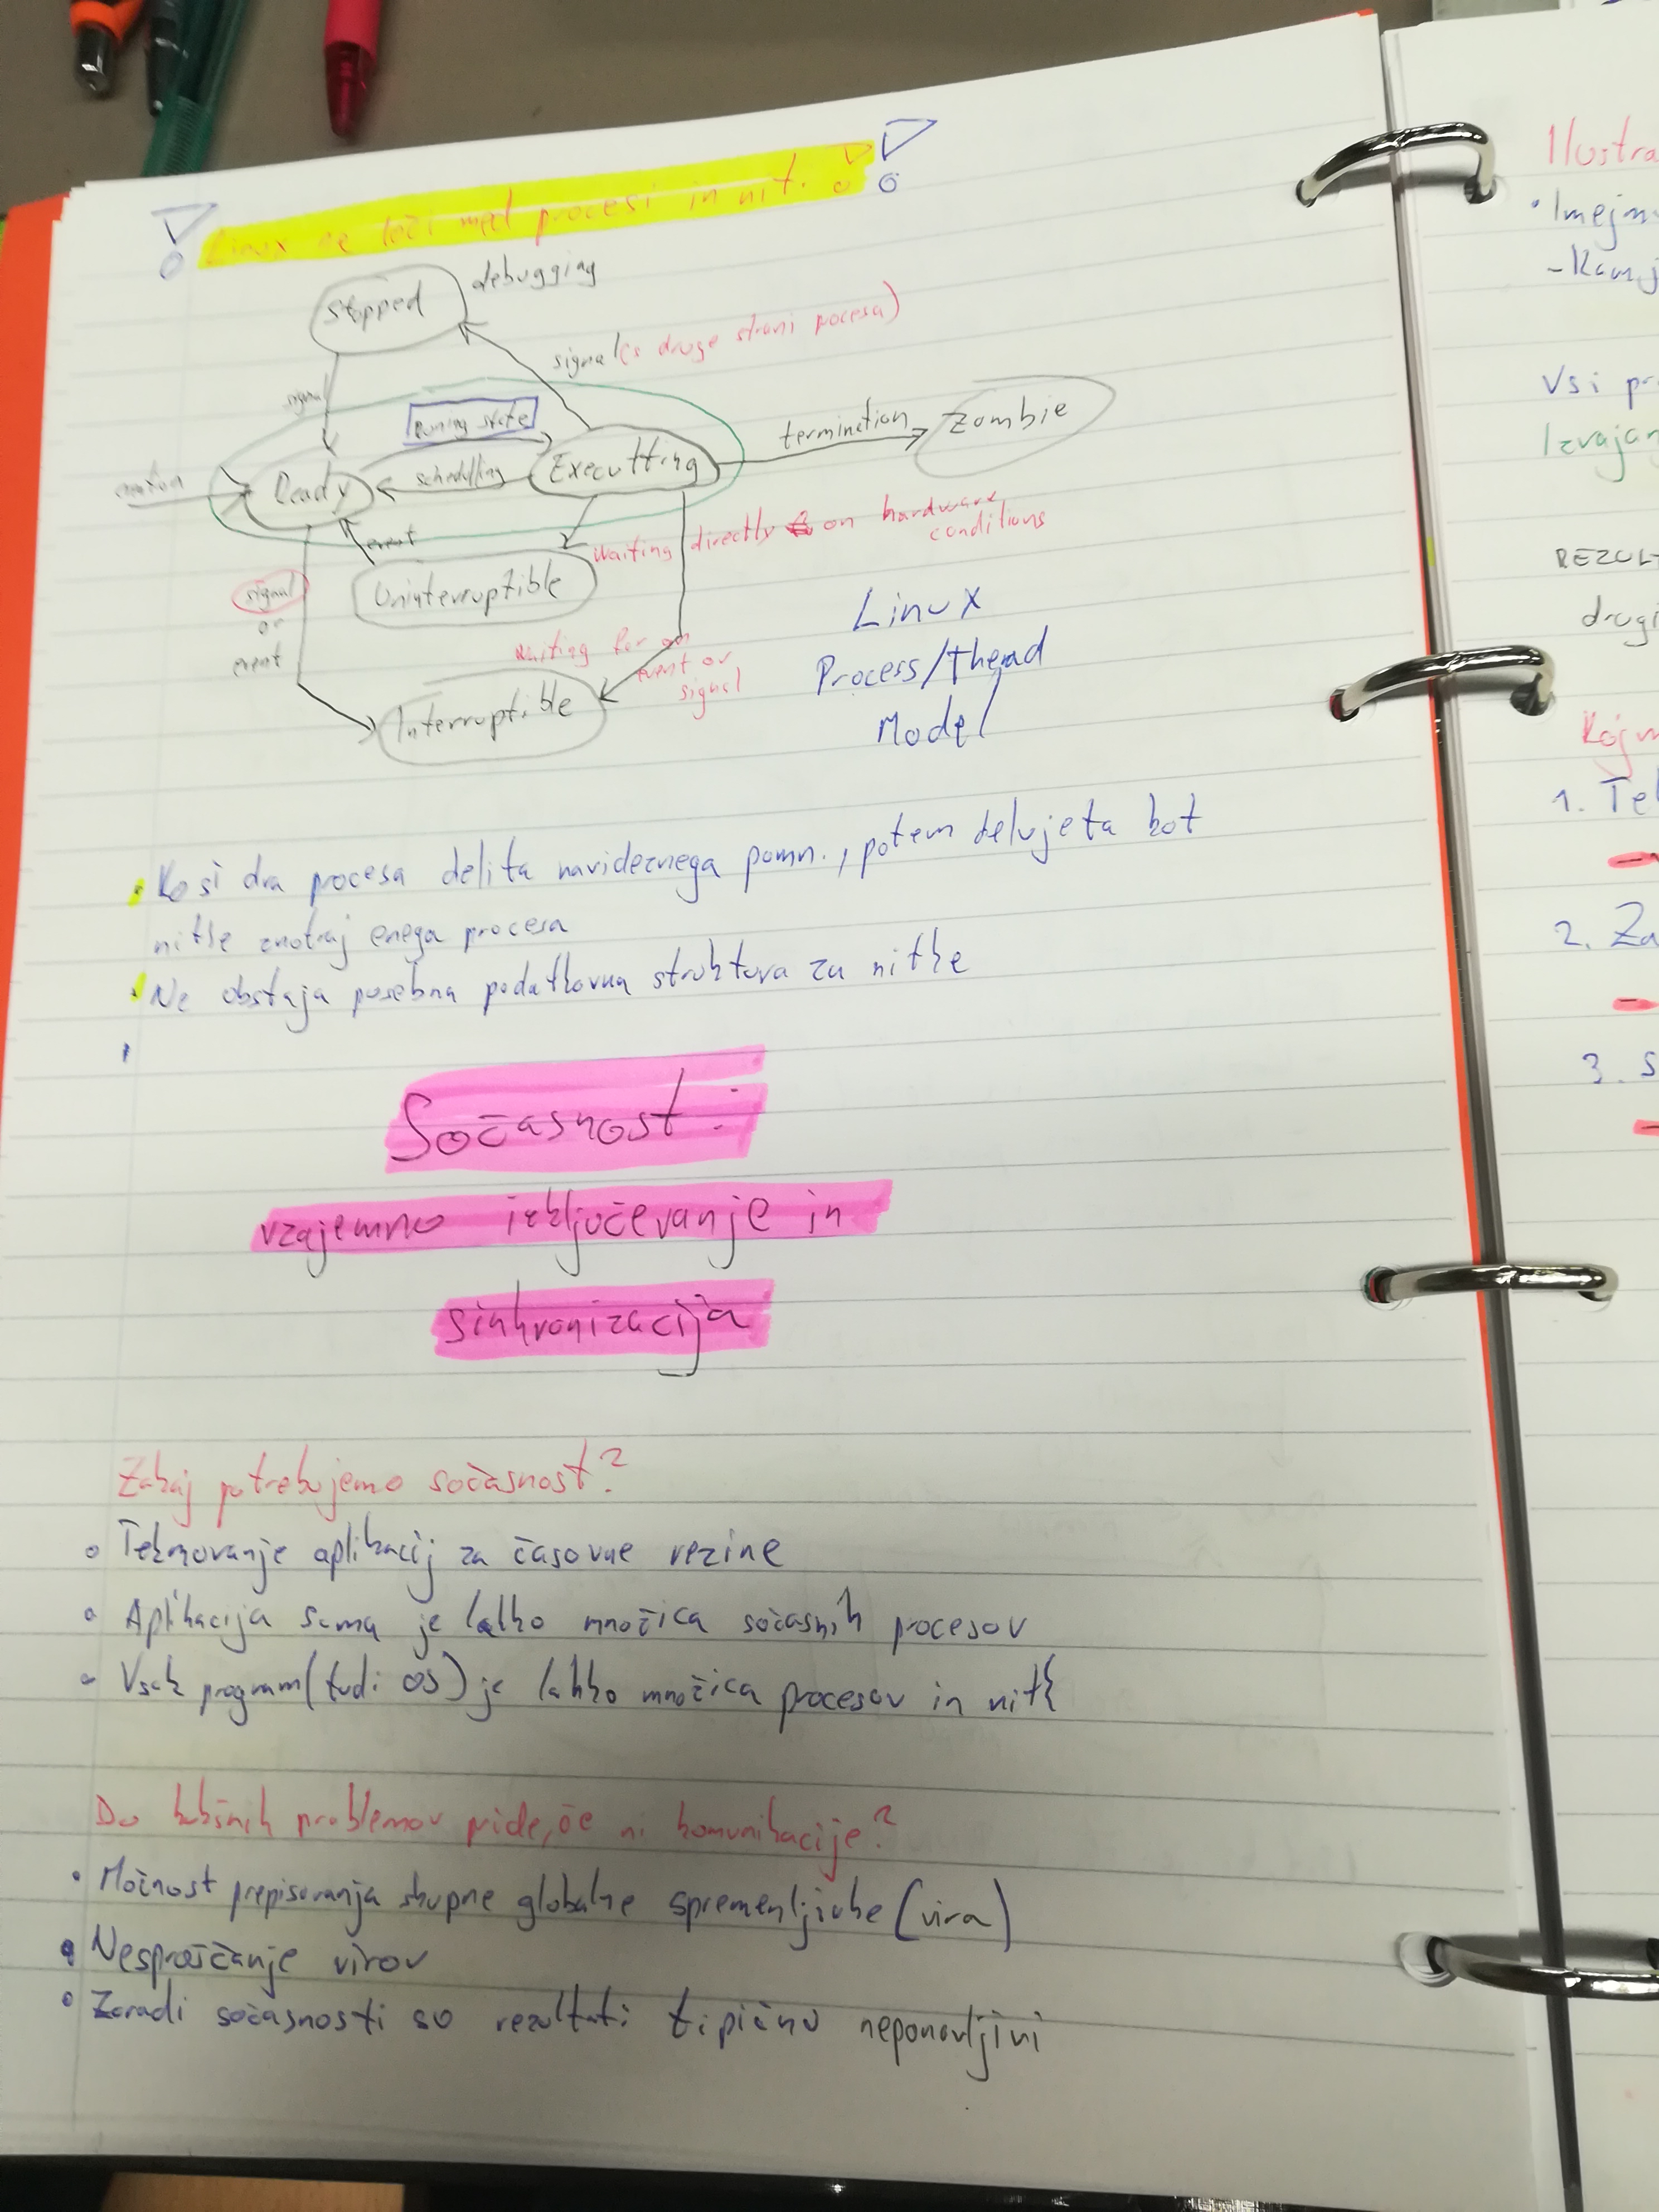 Linux ne loči med procesi in nit.
Stopped
debugging
signal (s druge strani pocesa)
signal
Runing state
termination
Zombie
Ready
schedulling
Executting
event
waiting directly on hardware
conditions
signal
or
event
Uninterruptible
waiting for an
event or
signal
Interruptible
Linux
Process/Thead
Model
• Ko si dva procesa delita navideznega pomn., potem delujeta kot
nitke znotraj enega procesa
• Ne obstaja posebna podatkovna struktura za nitke
Sočasnost:
vzajemno izključevanje in
sinhronizacija
Zakaj potrebujemo sočasnost?
• Tekmovanje aplikacij za časovne rezine
• Aplikacija sama je lahko množica sočasnih procesov
• Vsak program (tudi OS) je lahko množica procesov in nitk
Do kakšnih problemov pride, če ni komunikacije?
• Možnost prepisovanja skupne globalne spremenljivke (vira)
• Nesproščanje virov
• Zaradi sočasnosti so rezultati tipično neponovljivi
Ilustra
• Imejm
- Kam j
Vsi pr
Izvajan
REZULT
drugi
1. Te
2. Za
3. S